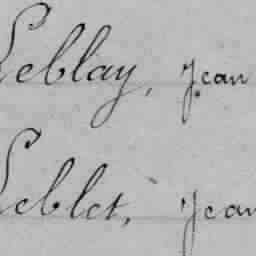 Leblay, Jean
Leblet, Jean